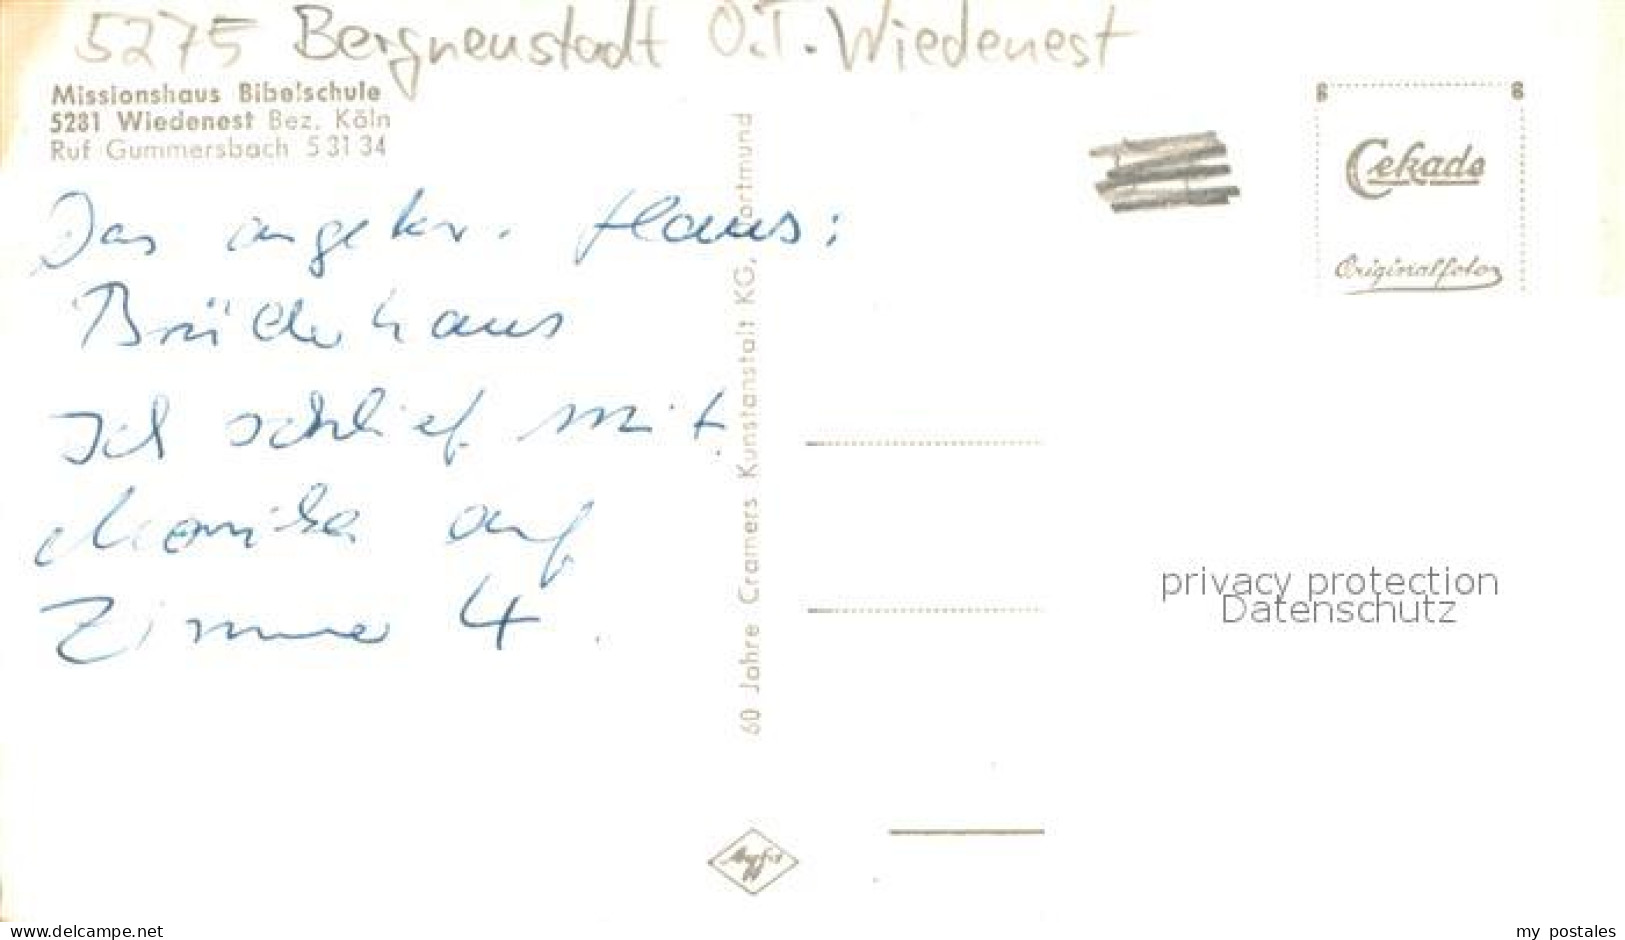 5275 Bergneustadt O.T. Wiedenest
Missionshaus Bibelschule
5281 Wiedenest Bez. Köln
Ruf Gummersbach 5 31 34
Das angekr. Haus:
Brüderhaus
Ich schlief mit
Monika auf
Zimmer 4.
60 Jahre Cramers Kunstanstalt KG, Dortmund
Cekade
Originalfoto
privacy protection
Datenschutz
Agfa
www.delcampe.net
my_postales